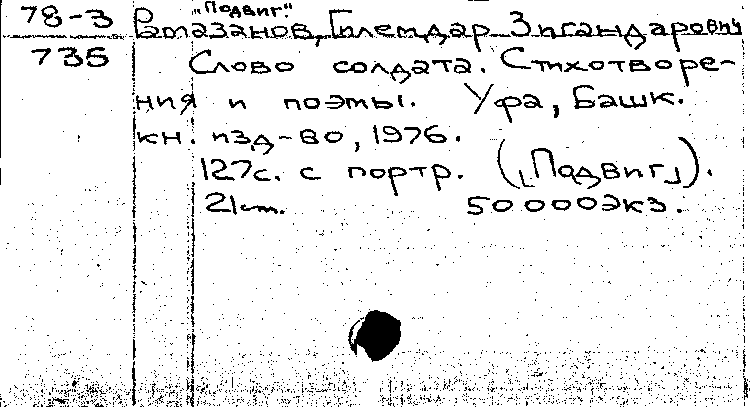 „Подвиг."
78-3 Рамазанов, Гилемдар Зигандарович
735 Слово солдата. Стихотворе-
ния и поэмы. Уфа, Башк.
кн. изд-во, 1976.
127с. с портр. („Подвиг").
21см. 50.000экз.